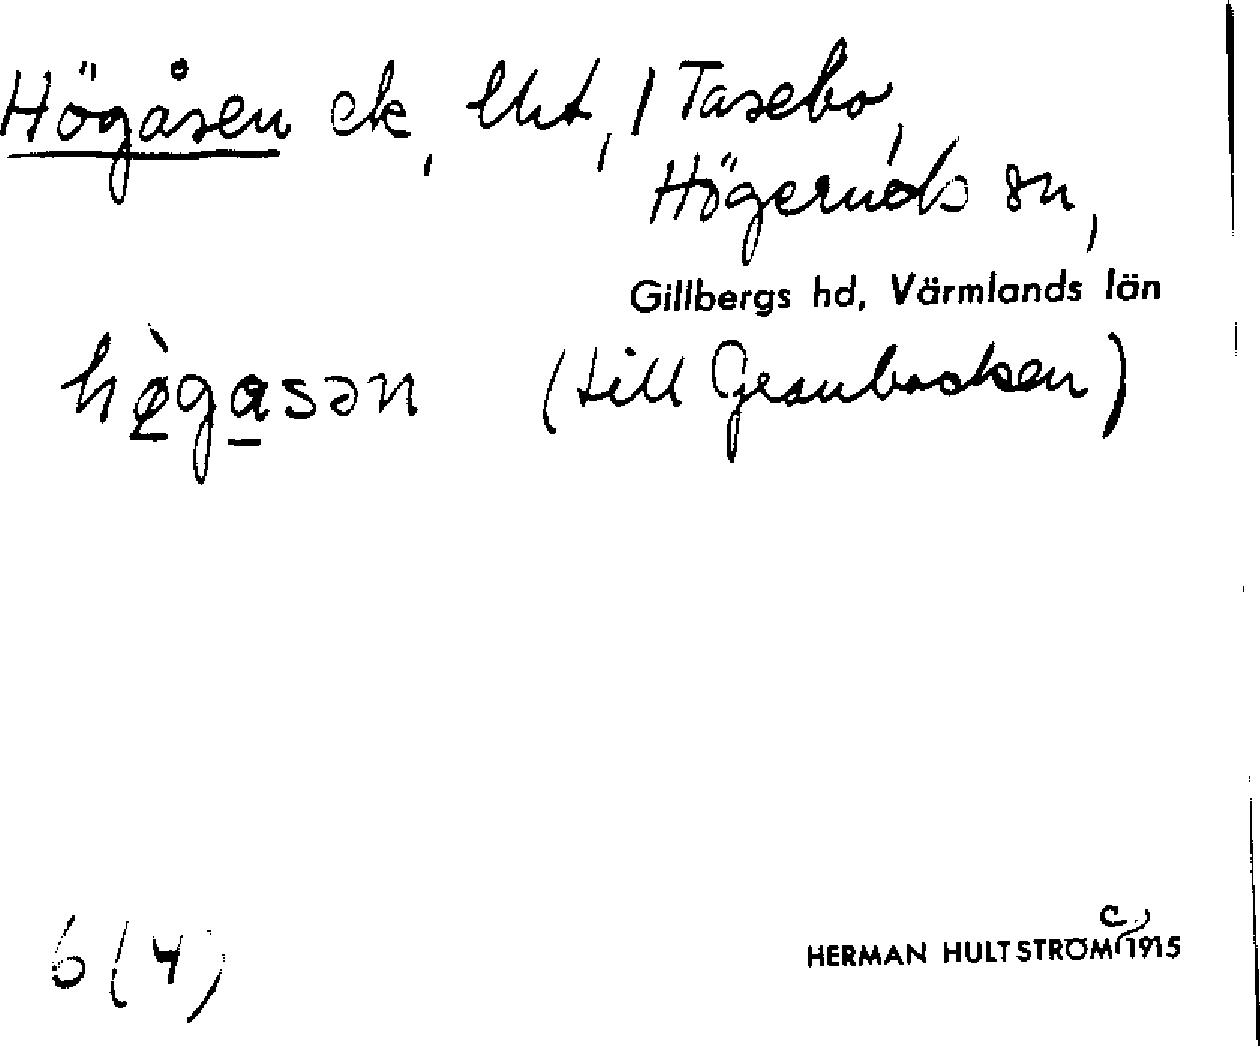 Högåsen ek, lht, 1 Tasebo,
Högeruds sn,
Gillbergs hd, Värmlands län
hø̀gasən (till Granbacken)
6 (4)
HERMAN HULTSTRÖM c 1915